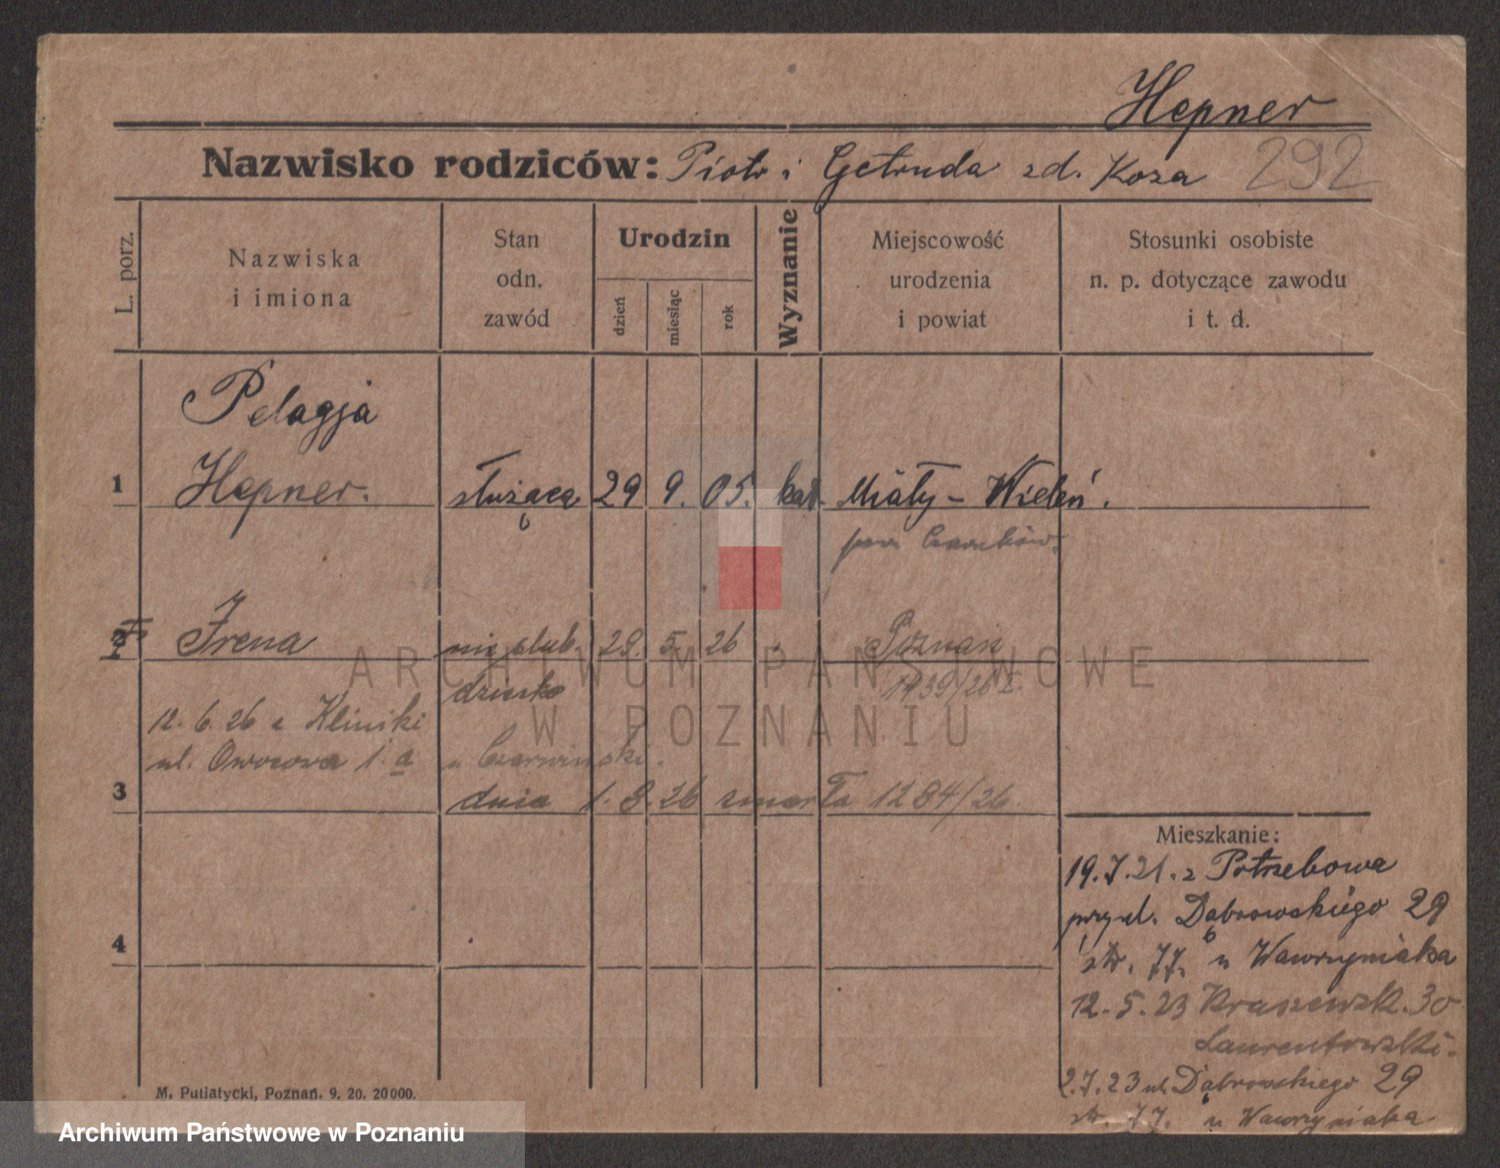 Hepner
Nazwisko rodziców: Piotr i Getruda zd. Koza 292
L. porz.
Nazwiska
i imiona
Stan
odn.
zawód
Urodzin
dzień
miesiąc
rok
Wyznanie
Miejscowość
urodzenia
i powiat
Stosunki osobiste
n. p. dotyczące zawodu
i t. d.
Pelagja
1 Hepner. służąca 29 9. 05. kat. Miały - Wieleń.
pow. Czarnków.
2 Irena nieślub. 29. 5. 26 Poznań
dziecko 1939/26 I.
12. 6. 26 z Kliniki
ul. Owocowa 1 a u Czarwiński.
3 dnia 1. 8. 26 zmarła 1284/26.
Mieszkanie:
19.7.21. z Potrzebowa
przy ul. Dąbrowskiego 29
str. 77. u Wawrzyniaka
12. 5. 23 Kraszewsk. 30
Laurentowski.
2.7.23 ul. Dąbrowskiego 29
str. 77. u Wawrzyniaka
4
M. Putiatycki, Poznań. 9. 20. 20000.
ARCHIWUM PAŃSTWOWE
W POZNANIU
Archiwum Państwowe w Poznaniu